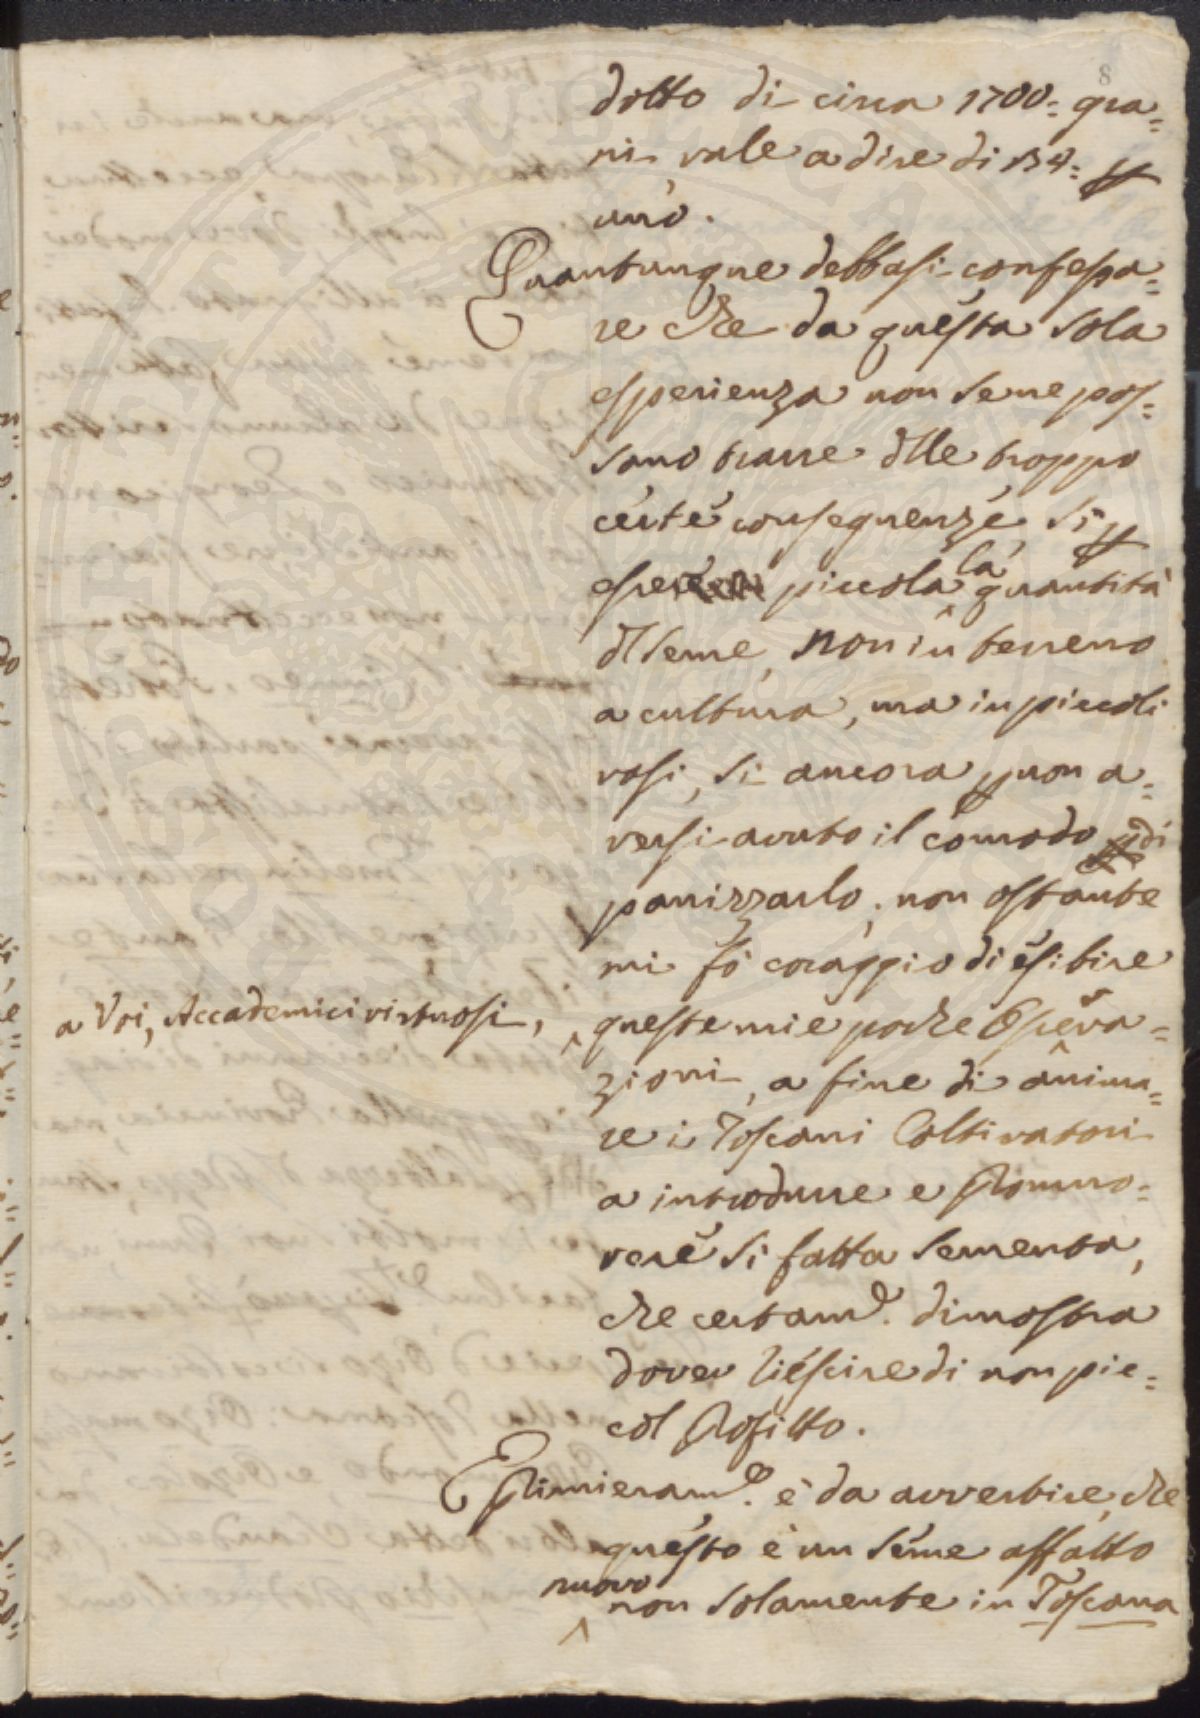 8
dotto di circa 1700= gra=
ni vale a dire di 134=
uno.
Quantunque debbasi confessa=
re che da questa sola
esperienza non se ne pos=
sano trarre dlle troppo
certe conseguenze, si
essere piccola la quantità
dl seme, non in terreno
a cultura, ma in piccoli
vasi, si ancora p non a=
versi avuto il comodo di
panizzarlo; non ostante
mi fò coraggio di esibire
a Voi, Accademici virtuosi,
queste mie poche Osserva=
zioni, a fine di anima=
re i Toscani Coltivatori
a introdurre e promuo=
vere si fatta sementa,
che certam.e dimostra
dover riescire di non pic=
col profitto.
E primieram.e è da avvertire, che
questo è un seme affatto
nuovo
non solamente in Toscana